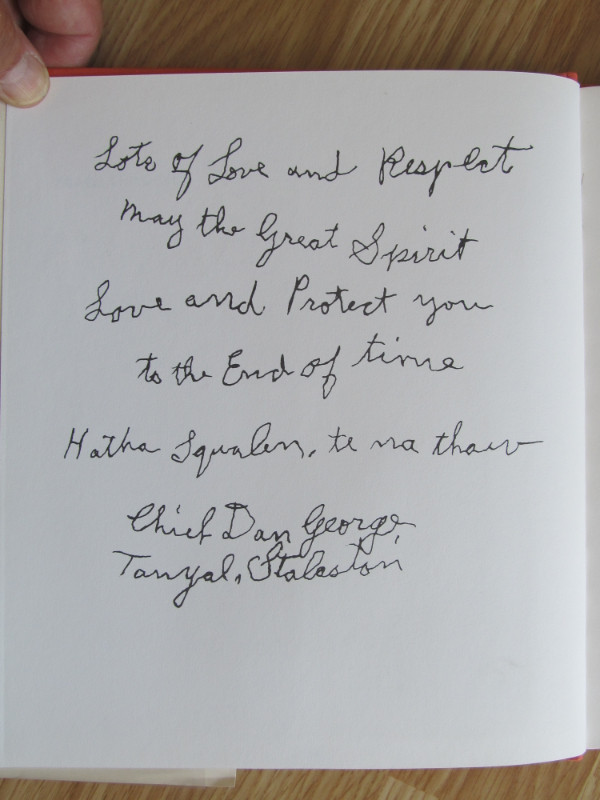 Lots of Love and Respect
may the Great Spirit
Love and Protect you
to the End of time
Hatha Squalen, te na thaw
Chief Dan George,
Tanyal, Stalaston